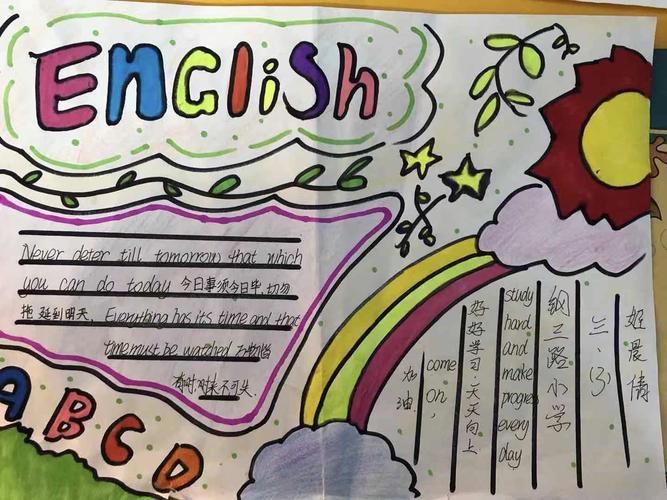 EnGliSh
Never deter till tomorrow that which
you can do today 今日事须今日毕,切勿
拖延到明天. Everything has its time and that
time must be watched 万物皆
有时,时来不可失.
A B C D
晨倩
三、(3)
路小学
study
hard
and
make
progres
every
day
好好学习.天天向上
come
on,
加油.